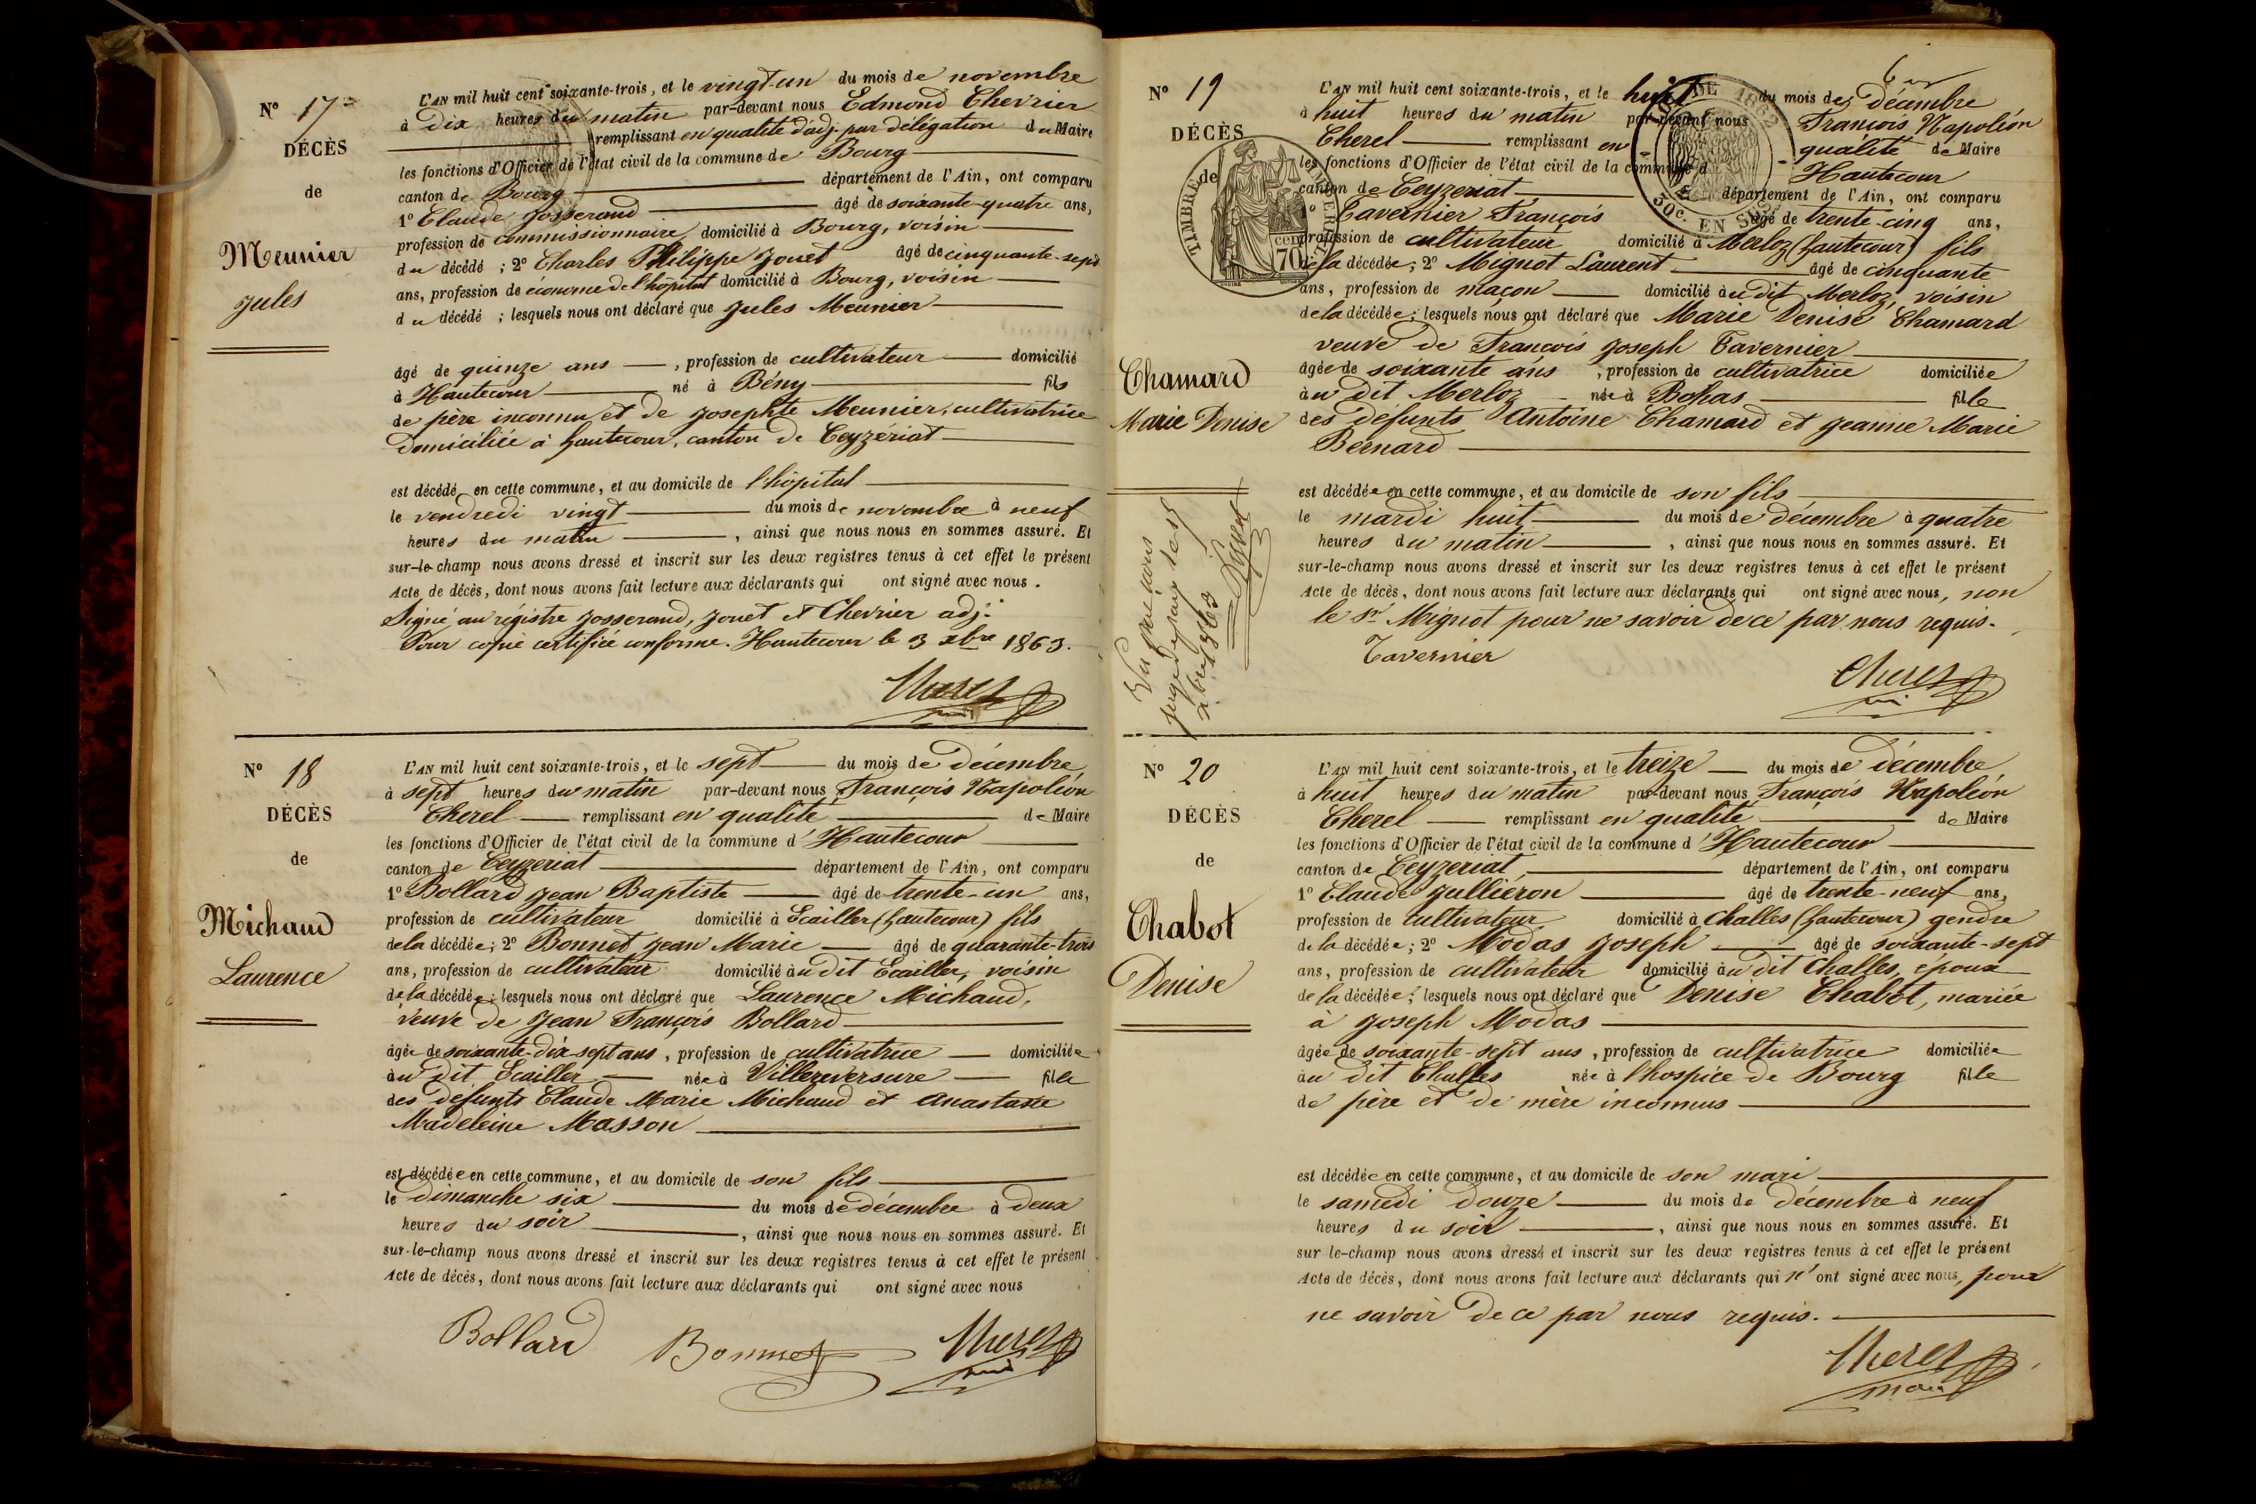 N° 17
DÉCÈS
de
Meunier
Jules
L'AN mil huit cent soixante-trois, et le vingt-un du mois de novembre
à dix heures du matin par-devant nous Edmond Chevrier
remplissant en qualité d'adj. par délégation du Maire
les fonctions d'Officier de l'état civil de la commune de Bourg
canton de Bourg département de l'Ain, ont comparu
1° Claude Josserand âgé de soixante-quatre ans,
profession de commissionnaire domicilié à Bourg, voisin
du décédé ; 2° Charles Philippe Jouet âgé de cinquante-sept
ans, profession de économe de l'hôpital domicilié à Bourg, voisin
du décédé ; lesquels nous ont déclaré que Jules Meunier
âgé de quinze ans, profession de cultivateur domicilié
à Hautecour né à Bény fils
de père inconnu et de Josephte Meunier, cultivatrice
domiciliée à hautecour, canton de Ceyzériat
est décédé en cette commune, et au domicile de l'hôpital
le vendredi vingt du mois de novembre à neuf
heures du matin, ainsi que nous nous en sommes assuré. Et
sur-le-champ nous avons dressé et inscrit sur les deux registres tenus à cet effet le présent
Acte de décès, dont nous avons fait lecture aux déclarants qui ont signé avec nous.
Signé au régistre Josserand, Jouet et Chevrier adj.
Pour copie certifiée conforme. Hautecour le 3 xbre 1863.
Cherel
N° 18
DÉCÈS
de
Michaud
Laurence
L'AN mil huit cent soixante-trois, et le sept du mois de décembre
à sept heures du matin par-devant nous François Napoléon
Cherel remplissant en qualité de Maire
les fonctions d'Officier de l'état civil de la commune d'Hautecour
canton de Ceyzeriat département de l'Ain, ont comparu
1° Bollard Jean Baptiste âgé de trente-un ans,
profession de cultivateur domicilié à Ecailler (hautecour) fils
de la décédée ; 2° Bonnet Jean Marie âgé de quarante-trois
ans, profession de cultivateur domicilié àu dit Ecailler, voisin
de la décédée ; lesquels nous ont déclaré que Laurence Michaud,
veuve de Jean François Bollard
âgée de soixante-dix-sept ans, profession de cultivatrice domiciliée
àu dit Ecailler née à Villereversure fille
des défunts Claude Marie Michaud et Anastasie
Madeleine Masson
est décédée en cette commune, et au domicile de son fils
le dimanche six du mois de décembre à deux
heures du soir, ainsi que nous nous en sommes assuré. Et
sur-le-champ nous avons dressé et inscrit sur les deux registres tenus à cet effet le présent
Acte de décès, dont nous avons fait lecture aux déclarants qui ont signé avec nous
Bollard Bonnet Cherel
N° 19
DÉCÈS
de
TIMBRE
UNIVERSEL
cent
70
Chamard
Marie Denise
DE 1862
50c. EN SUS
L'AN mil huit cent soixante-trois, et le huit du mois de décembre
à huit heures du matin par-devant nous François Napoléon
Cherel remplissant en qualité de Maire
les fonctions d'Officier de l'état civil de la commune d Hautecour
canton de Ceyzeriat département de l'Ain, ont comparu
1° Tavernier François âgé de trente-cinq ans,
profession de cultivateur domicilié à Merloz (hautecour) fils
de la décédée ; 2° Mignot Laurent âgé de cinquante
ans, profession de maçon domicilié àu dit Merloz, voisin
de la décédée ; lesquels nous ont déclaré que Marie Denise Chamard
veuve de François Joseph Tavernier
âgée de soixante ans, profession de cultivatrice domiciliée
àu dit Merloz née à Bohas fille
des défunts Antoine Chamard et Jeanne Marie
Bernard
est décédée en cette commune, et au domicile de son fils
le mardi huit du mois de décembre à quatre
heures du matin, ainsi que nous nous en sommes assuré. Et
sur-le-champ nous avons dressé et inscrit sur les deux registres tenus à cet effet le présent
Acte de décès, dont nous avons fait lecture aux déclarants qui ont signé avec nous, non
le sr Mignot pour ne savoir de ce par nous requis.
Tavernier Cherel
Vu par nous
juge de paix le 15
xbre 1863
N° 20
DÉCÈS
de
Chabot
Denise
L'AN mil huit cent soixante-trois, et le treize du mois de décembre
à huit heures du matin par-devant nous François Napoléon
Cherel remplissant en qualité de Maire
les fonctions d'Officier de l'état civil de la commune d'Hautecour
canton de Ceyzeriat, département de l'Ain, ont comparu
1° Claude Julliéron âgé de trente-neuf ans,
profession de cultivateur domicilié à Challes (hautecour) gendre
de la décédée ; 2° Modas Joseph âgé de soixante-sept
ans, profession de cultivateur domicilié àu dit Challes, époux
de la décédée ; lesquels nous ont déclaré que Denise Chabot, mariée
à Joseph Modas
âgée de soixante-sept ans, profession de cultivatrice domiciliée
àu dit Challes née à l'hospice de Bourg fille
de père et de mère inconnus
est décédée en cette commune, et au domicile de son mari
le samedi douze du mois de décembre à neuf
heures du soir, ainsi que nous nous en sommes assuré. Et
sur-le-champ nous avons dressé et inscrit sur les deux registres tenus à cet effet le présent
Acte de décès, dont nous avons fait lecture aux déclarants qui n'ont signé avec nous, pour
ne savoir de ce par nous requis.
Cherel
maire